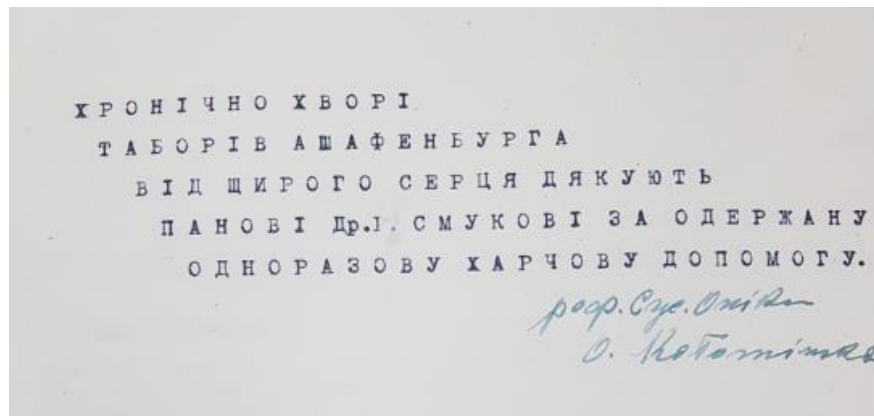 ХРОНІЧНО ХВОРІ
ТАБОРІВ АШАФЕНБУРГА
ВІД ЩИРОГО СЕРЦЯ ДЯКУЮТЬ
ПАНОВІ Др.І. СМУКОВІ ЗА ОДЕРЖАНУ
ОДНОРАЗОВУ ХАРЧОВУ ДОПОМОГУ.
реф. Сус. Опіки
О.